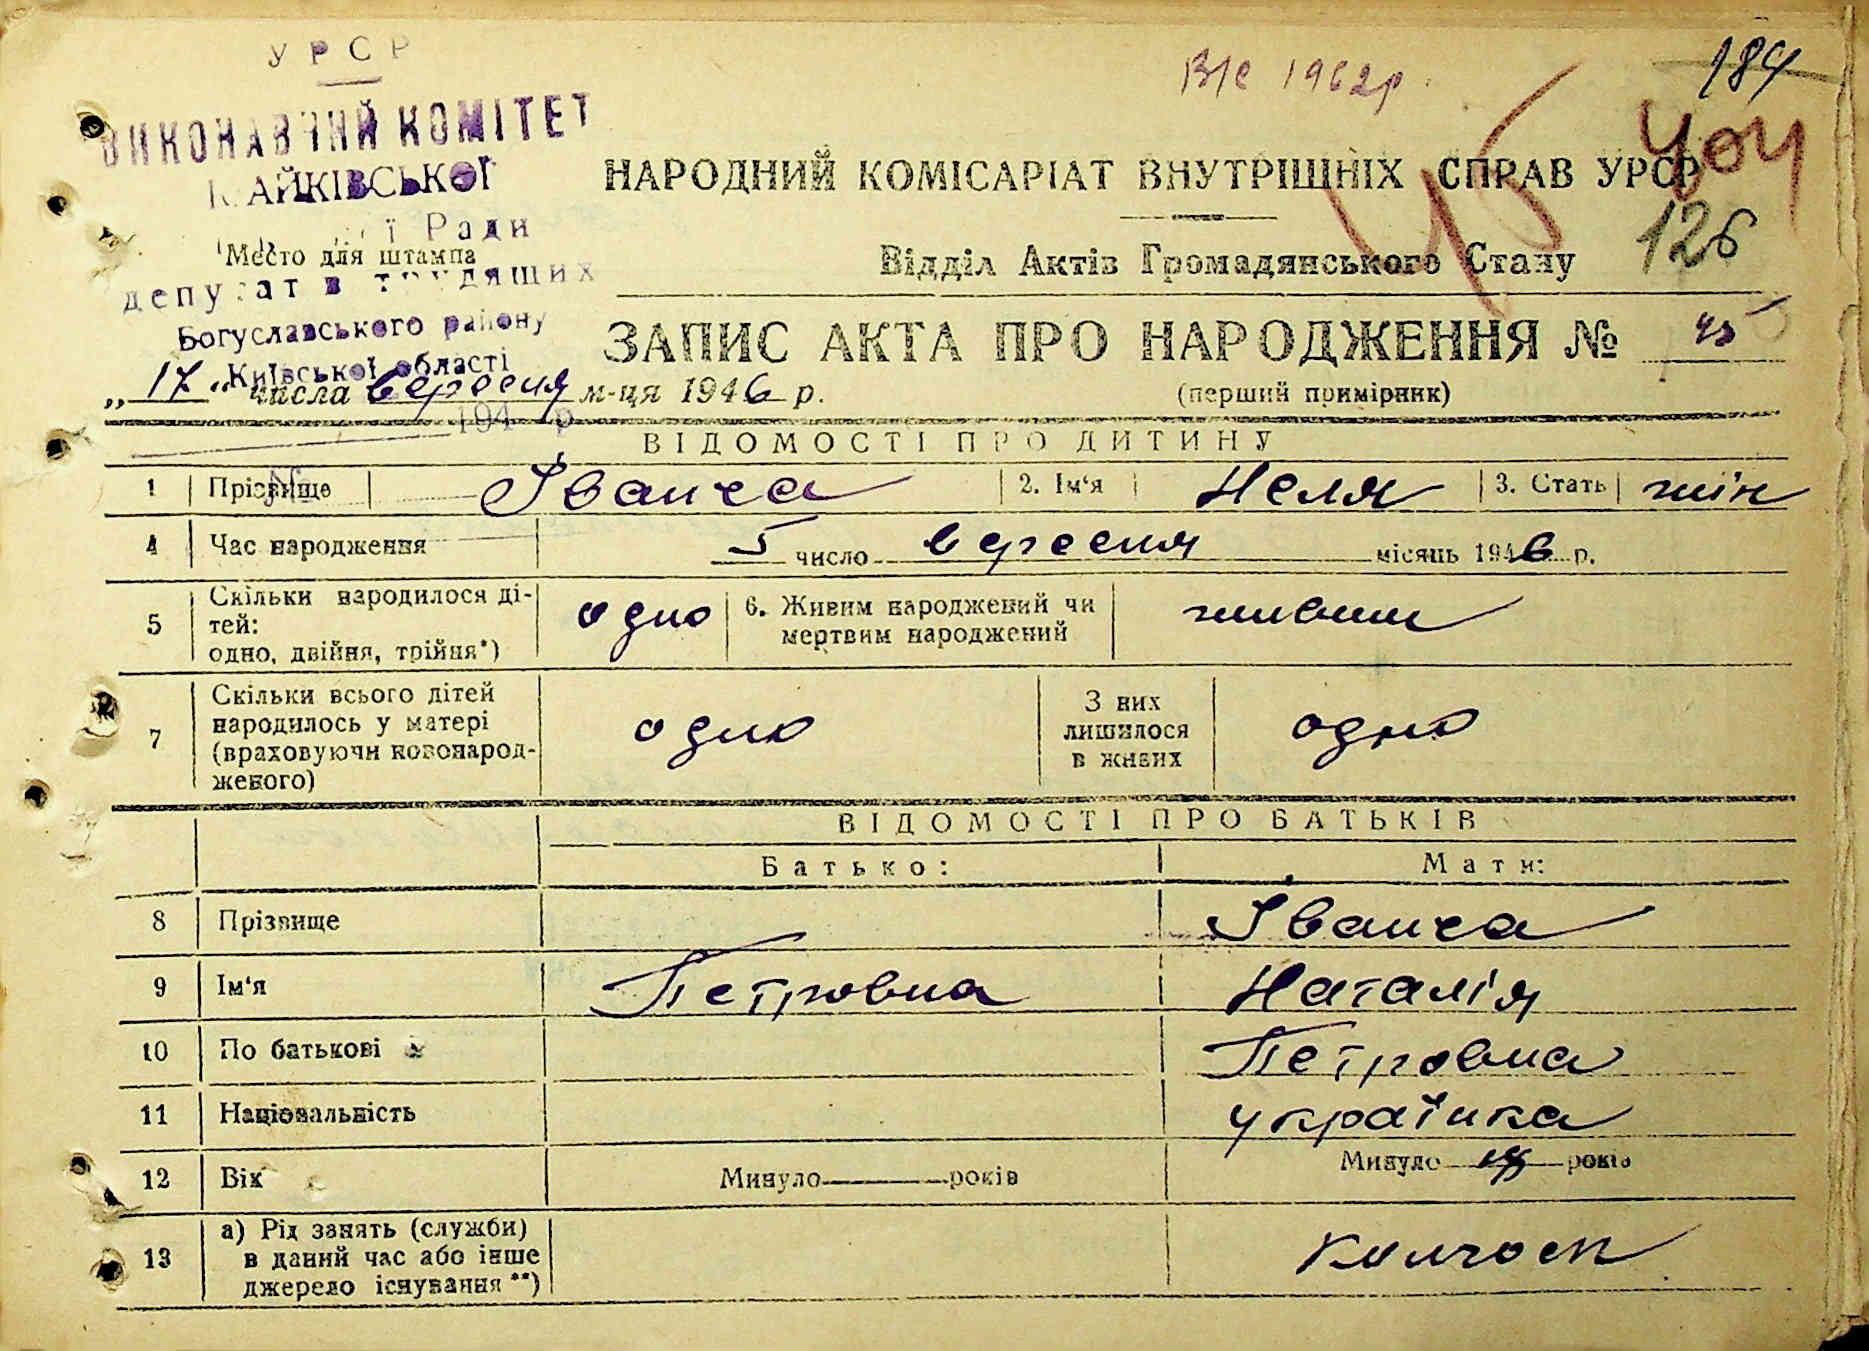 УРСР
ВИКОНАВЧИЙ КОМІТЕТ
МАЙКІВСЬКОЇ
ї Ради
Место для штампа
депутатів трудящих
Богуславського району
Київської області
194 р.
№
В/с 1962р.
184
404
126
45
НАРОДНИЙ КОМІСАРІАТ ВНУТРІШНІХ СПРАВ УРСР
Відділ Актів Громадянського Стану
ЗАПИС АКТА ПРО НАРОДЖЕННЯ № 45
(перший примірник)
„17“ числа вересня м-ця 1946 р.
ВІДОМОСТІ ПРО ДИТИНУ
1 Прізвище Іванча 2. Ім'я Неля 3. Стать жін
4 Час народження 5 число вересня місяць 1946 р.
5 Скільки народилося ді-
тей:
одно, двійня, трійня*) одно 6. Живим народжений чи
мертвим народжений живим
7 Скільки всього дітей
народилось у матері
(враховуючи новонарод-
женого) одно З них
лишилося
в живих одно
ВІДОМОСТІ ПРО БАТЬКІВ
Батько: Мати:
8 Прізвище Іванча
9 Ім'я Петровна Наталія
10 По батькові Петровна
11 Національність українка
12 Вік Минуло років Минуло років
13 а) Рід занять (служби)
в даний час або інше
джерело існування **) колгосп